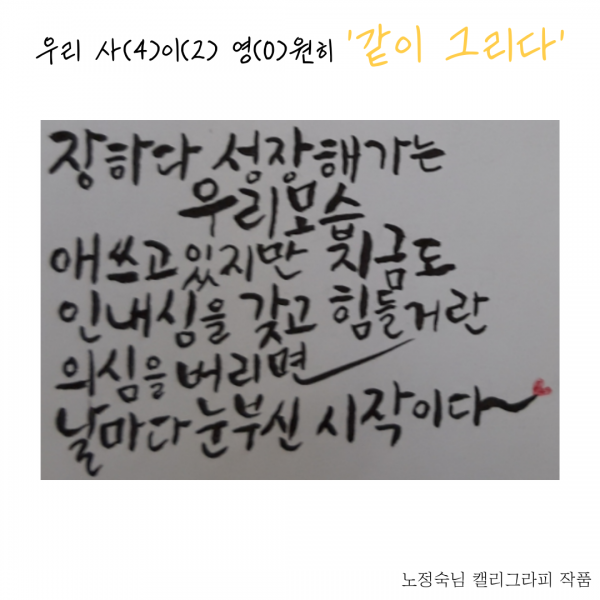 우리 사(4)이(2) 영(0)원히 '같이 그리다'
장하다 성장해가는
우리모습
애쓰고 있지만 지금도
인내심을 갖고 힘들거란
의심을 버리면
날마다 눈부신 시작이다~
노정숙님 캘리그라피 작품